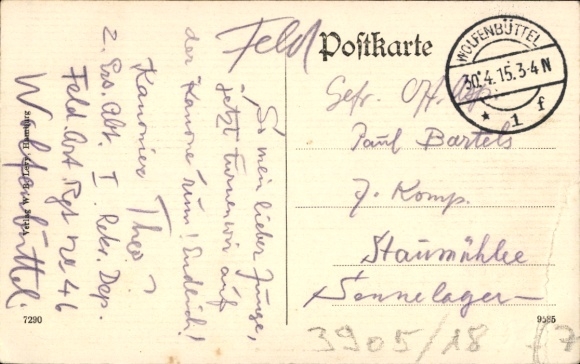 Feld Postkarte
WOLFENBÜTTEL
30.4.15.3-4N
* 1 f
Gefr. Off. Asp.
Paul Bartels
7. Komp.
Staumühle
Sennelager
So mein lieber Junge,
jetzt turnen wir auf
der Kanone rum! Endlich!
Kanonier Theo
2. Ers. Abt. I. Rekr. Dep.
Feld. Art. Rgt No 46
Wolfenbüttel.
Hamburg
7290
9585
3905/18